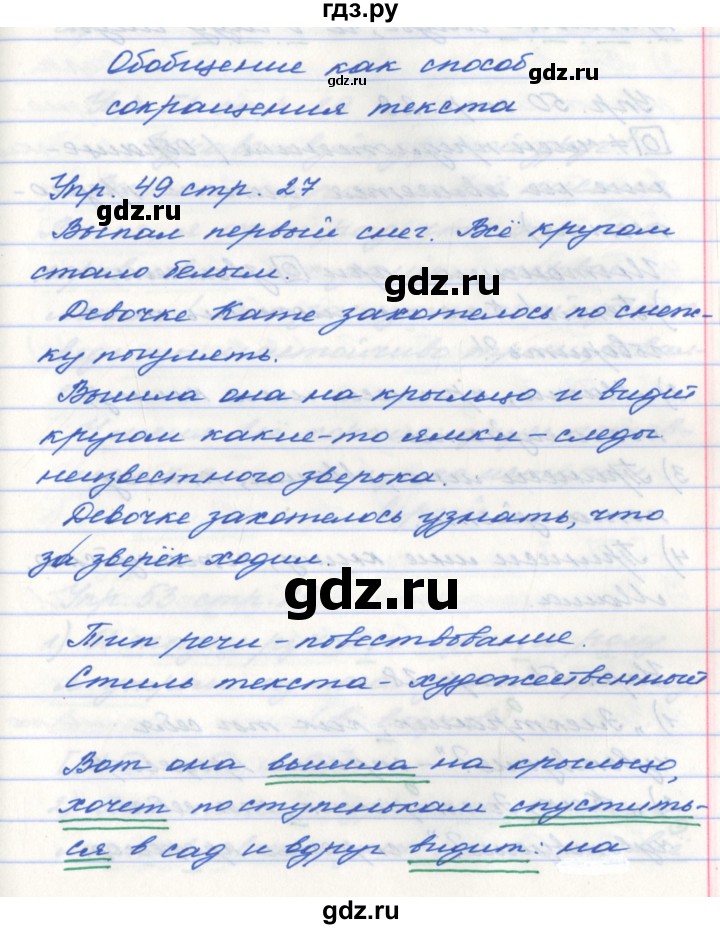 гдз.ру
Обобщение как способ
gdz.ru
сокращения текста
Упр. 49 стр. 27
gdz.ru
Выпал первый снег. Всё кругом
gdz.ru
стало белым.
Девочке Кате захотелось по снеж-
ку погулять.
Вышла она на крыльцо и видит
кругом какие-то ямки – следы
неизвестного зверька.
Девочке захотелось узнать, что
за зверёк ходил.
gdz.ru
Тип речи – повествование.
Стиль текста – художественный
Вот она вышла на крыльцо,
хочет по ступенькам спустить-
ся в сад и вдруг видит: на
gdz.ru